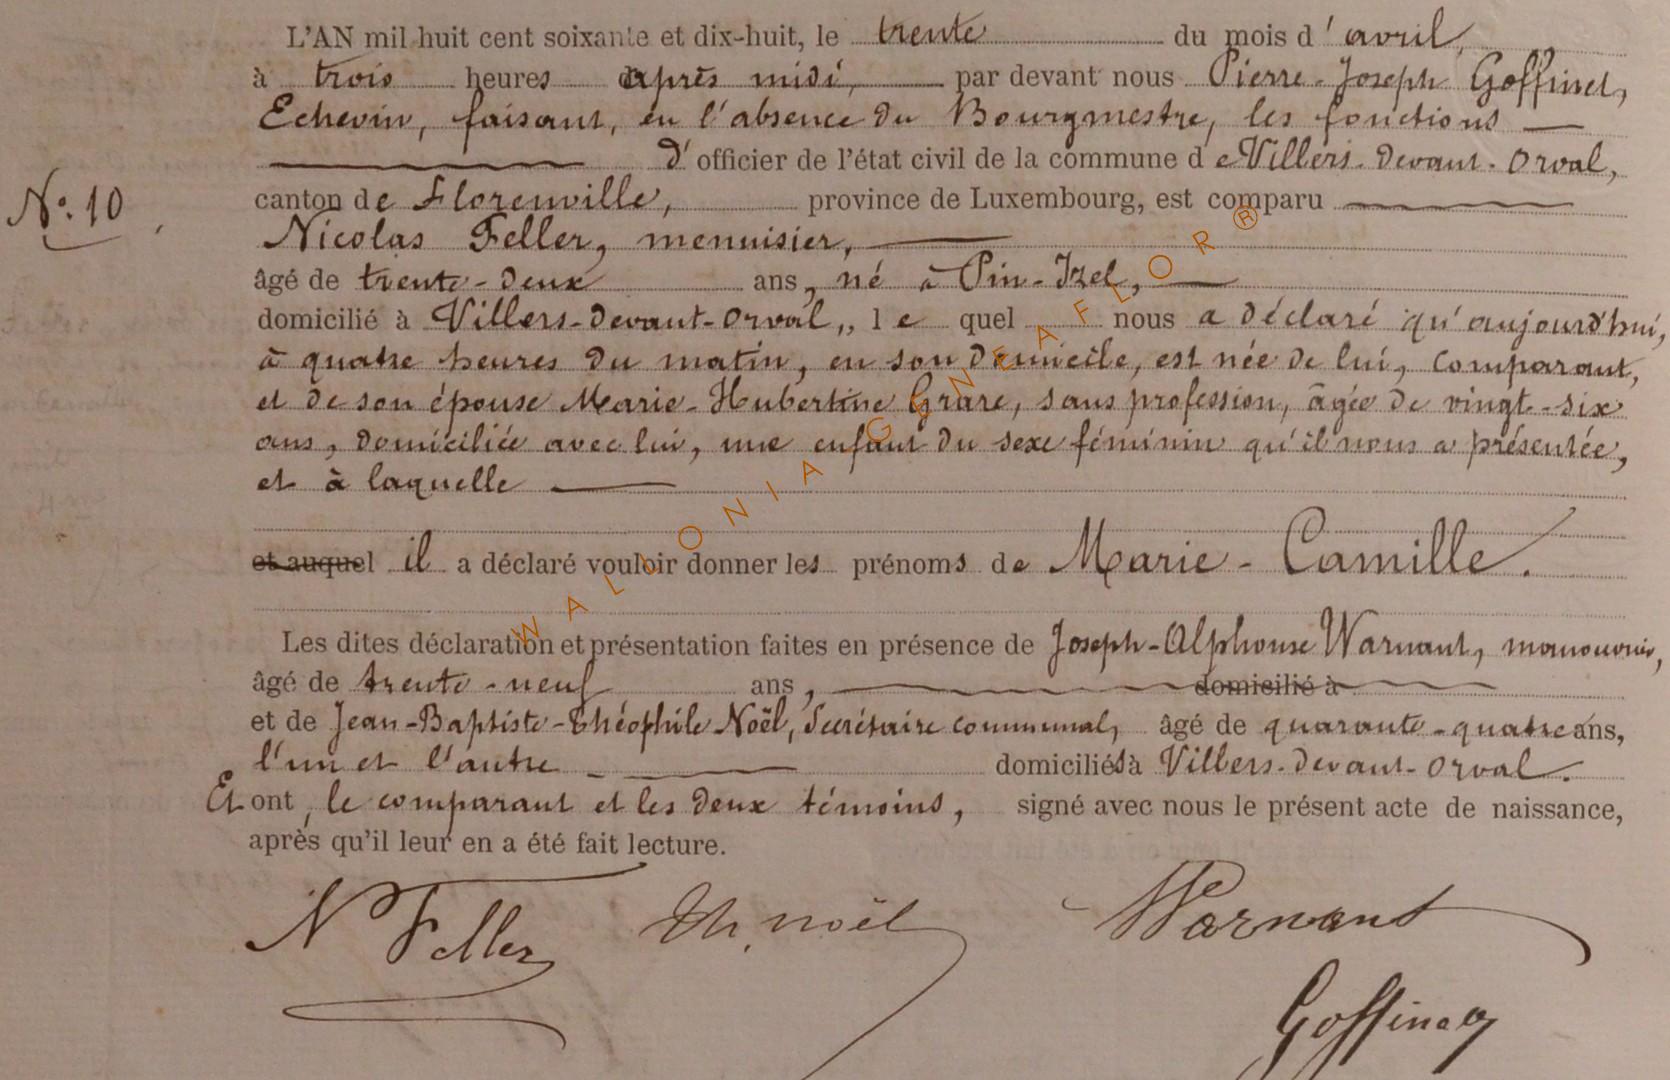 L'AN mil huit cent soixante et dix-huit, le trente du mois d'avril,
à trois heures après midi, par devant nous Pierre-Joseph Goffinet,
Echevin, faisant, en l'absence du Bourgmestre, les fonctions
d'officier de l'état civil de la commune de Villers-devant-Orval,
N° 10
canton de Florenville, province de Luxembourg, est comparu
Nicolas Feller, menuisier,
âgé de trente-deux ans, né à Pin-Izel,
domicilié à Villers-devant-Orval, lequel nous a déclaré qu'aujourd'hui,
à quatre heures du matin, en son domicile, est née de lui, comparant,
et de son épouse Marie-Hubertine Grare, sans profession, âgée de vingt-six
ans, domiciliée avec lui, une enfant du sexe féminin qu'il nous a présentée,
et à laquelle
et auquel il a déclaré vouloir donner les prénoms de Marie-Camille.
Les dites déclaration et présentation faites en présence de Joseph-Alphonse Warnant, manouvrier,
âgé de trente-neuf ans, domicilié à
et de Jean-Baptiste-Théophile Noël, Secrétaire communal, âgé de quarante-quatre ans,
l'un et l'autre domiciliés à Villers-devant-Orval.
Et ont, le comparant et les deux témoins, signé avec nous le présent acte de naissance,
après qu'il leur en a été fait lecture.
N Feller Th. Noël Warnant
Goffinet
WALLONIA GENEAFLOR ®